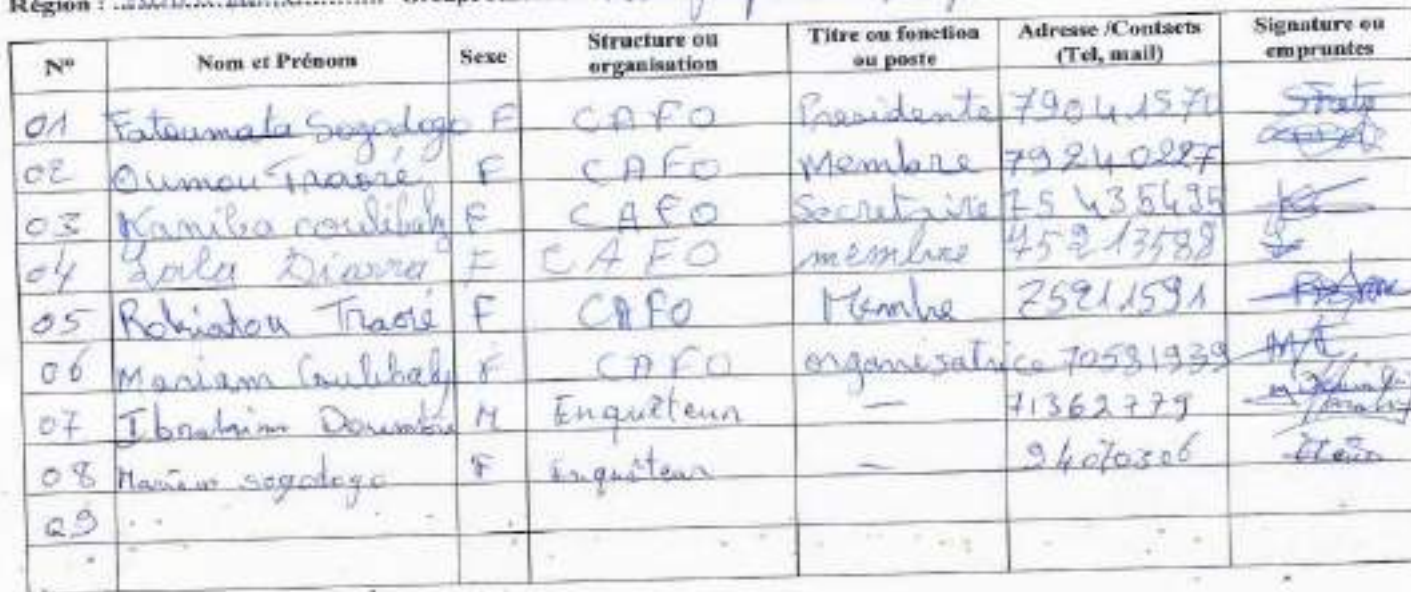 Région :
N° Nom et Prénom Sexe Structure ou organisation Titre ou fonction ou poste Adresse /Contacts (Tel, mail) Signature ou empruntes
01 Fatoumata Sogodogo F CAFO Presidente 79041574
02 Oumou Traoré F CAFO Membre 79240227
03 Kaniba coulibaly F CAFO Secretaire 75435495
04 Lala Diarra F CAFO membre 75213588
05 Robiatou Traoré F CAFO Membre 75911591
06 Mariam Coulibaly F CAFO organisatrice 70591939
07 Ibrahim Doumbia M Enquêteur — 71362779
08 Mariam sogodogo F Enquêteur — 94070306
09